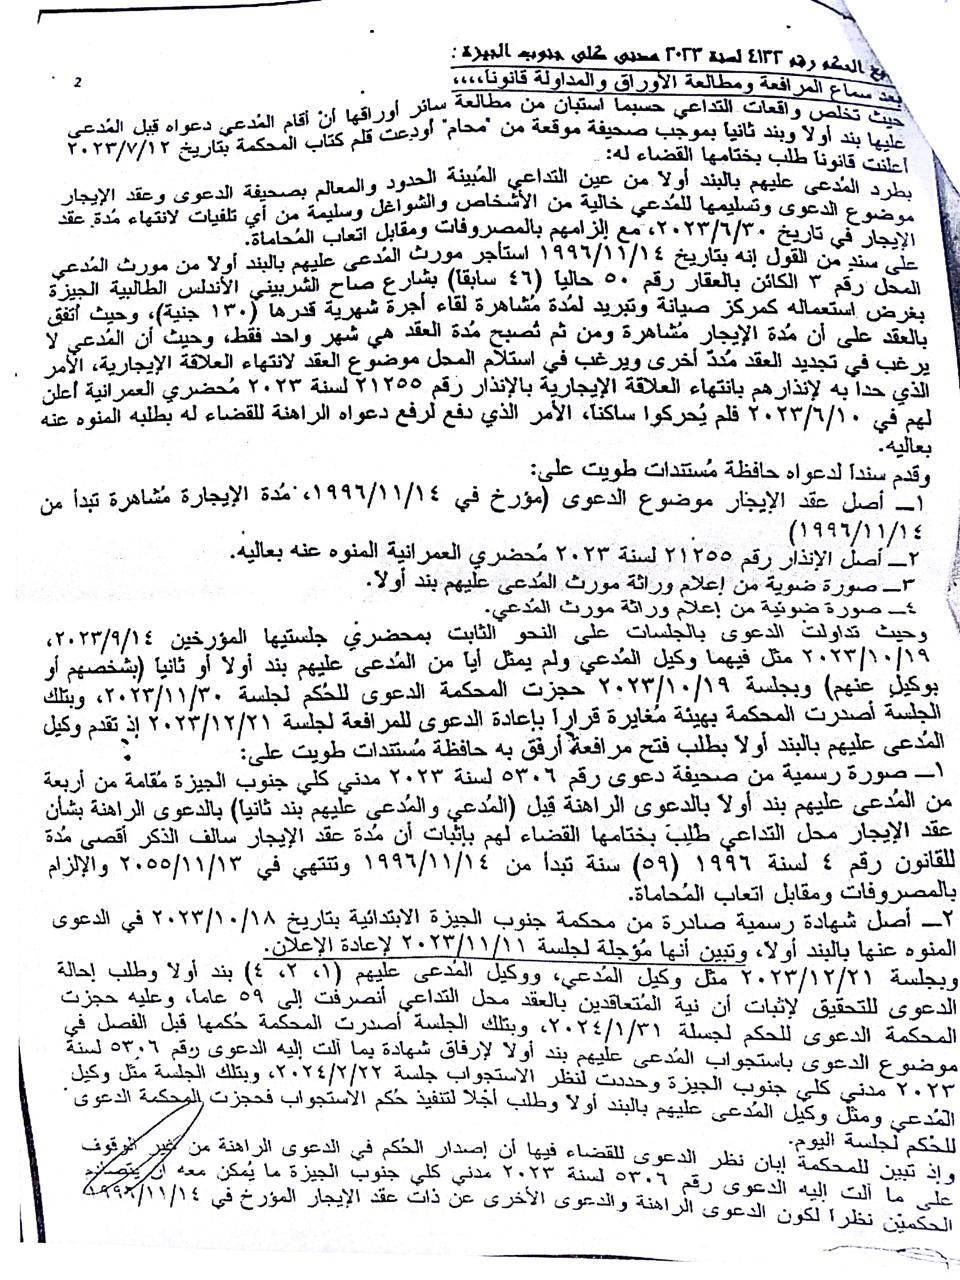 2
الحكم رقم ٤١٣٢ لسنة ٢٠٢٣ مدني كلي جنوب الجيزة :
بعد سماع المرافعة ومطالعة الأوراق والمداولة قانوناً،،،،
حيث تخلص واقعات التداعي حسبما استبان من مطالعة سائر أوراقها أن أقام المُدعي دعواه قبل المُدعى
عليها بند أولاً وبند ثانياً بموجب صحيفة موقعة من "محام" أودعت قلم كتاب المحكمة بتاريخ ٢٠٢٣/٧/١٢
أعلنت قانوناً طلب بختامها القضاء له:
بطرد المُدعى عليهم بالبند أولاً من عين التداعي المُبينة الحدود والمعالم بصحيفة الدعوى وعقد الإيجار
موضوع الدعوى وتسليمها للمُدعي خالية من الأشخاص والشواغل وسليمة من أي تلفيات لانتهاء مُدة عقد
الإيجار في تاريخ ٢٠٢٣/٦/٣٠، مع إلزامهم بالمصروفات ومقابل اتعاب المُحاماة.
على سندٍ من القول إنه بتاريخ ١٩٩٦/١١/١٤ استأجر مورث المُدعى عليهم بالبند أولا من مورث المُدعي
المحل رقم ٣ الكائن بالعقار رقم ٥٠ حالياً (٤٦ سابقاً) بشارع صاح الشربيني الأندلس الطالبية الجيزة
بغرض استعماله كمركز صيانة وتبريد لمُدة مُشاهرة لقاء أجرة شهرية قدرها (١٣٠ جنية)، وحيث أتفق
بالعقد على أن مُدة الإيجار مُشاهرة ومن ثم تُصبح مُدة العقد هي شهر واحد فقط، وحيث أن المُدعي لا
يرغب في تجديد العقد مُددٍ أخرى ويرغب في استلام المحل موضوع العقد لانتهاء العلاقة الإيجارية، الأمر
الذي حدا به لإنذارهم بانتهاء العلاقة الإيجارية بالإنذار رقم ٢١٢٥٥ لسنة ٢٠٢٣ مُحضري العمرانية أعلن
لهم في ٢٠٢٣/٦/١٠ فلم يُحركوا ساكناً، الأمر الذي دفع لرفع دعواه الراهنة للقضاء له بطلبه المنوه عنه
بعاليه.
وقدم سنداً لدعواه حافظة مُستندات طويت على:
١ــ أصل عقد الإيجار موضوع الدعوى (مؤرخ في ١٩٩٦/١١/١٤، مُدة الإيجارة مُشاهرة تبدأ من
١٩٩٦/١١/١٤)
٢ــ أصل الإنذار رقم ٢١٢٥٥ لسنة ٢٠٢٣ مُحضري العمرانية المنوه عنه بعاليه.
٣ــ صورة ضوية من إعلام وراثة مورث المُدعى عليهم بند أولاً.
٤ــ صورة ضوئية من إعلام وراثة مورث المُدعي.
وحيث تداولت الدعوى بالجلسات على النحو الثابت بمحضري جلستيها المؤرخين ٢٠٢٣/٩/١٤،
٢٠٢٣/١٠/١٩ مثل فيهما وكيل المُدعي ولم يمثل أياً من المُدعى عليهم بند أولاً أو ثانياً (بشخصهم أو
بوكيلٍ عنهم) وبجلسة ٢٠٢٣/١٠/١٩ حجزت المحكمة الدعوى للحُكم لجلسة ٢٠٢٣/١١/٣٠، وبتلك
الجلسة أصدرت المحكمة بهيئة مُغايرة قراراً بإعادة الدعوى للمرافعة لجلسة ٢٠٢٣/١٢/٢١ إذ تقدم وكيل
المُدعى عليهم بالبند أولا بطلب فتح مرافعة أرفق به حافظة مُستندات طويت على:
١ــ صورة رسمية من صحيفة دعوى رقم ٥٣٠٦ لسنة ٢٠٢٣ مدني كلي جنوب الجيزة مُقامة من أربعة
من المُدعى عليهم بند أولاً بالدعوى الراهنة قِبل (المُدعي والمُدعى عليهم بند ثانياً) بالدعوى الراهنة بشأن
عقد الإيجار محل التداعي طُلِبَ بختامها القضاء لهم بإثبات أن مُدة عقد الإيجار سالف الذكر أقصى مُدة
للقانون رقم ٤ لسنة ١٩٩٦ (٥٩) سنة تبدأ من ١٩٩٦/١١/١٤ وتنتهي في ٢٠٥٥/١١/١٣ والإلزام
بالمصروفات ومقابل اتعاب المُحاماة.
٢ــ أصل شهادة رسمية صادرة من محكمة جنوب الجيزة الابتدائية بتاريخ ٢٠٢٣/١٠/١٨ في الدعوى
المنوه عنها بالبند أولاً، وتبين أنها مُؤجلة لجلسة ٢٠٢٣/١١/١١ لإعادة الإعلان.
وبجلسة ٢٠٢٣/١٢/٢١ مثل وكيل المُدعي، ووكيل المُدعى عليهم (١، ٢، ٤) بند أولا وطلب إحالة
الدعوى للتحقيق لإثبات أن نية المُتعاقدين بالعقد محل التداعي أنصرفت إلى ٥٩ عاما، وعليه حجزت
المحكمة الدعوى للحكم لجسلة ٢٠٢٤/١/٣١، وبتلك الجلسة أصدرت المحكمة حُكمها قبل الفصل في
موضوع الدعوى باستجواب المُدعى عليهم بند أولا لإرفاق شهادة بما آلت إليه الدعوى رقم ٥٣٠٦ لسنة
٢٠٢٣ مدني كلي جنوب الجيزة وحددت لنظر الاستجواب جلسة ٢٠٢٤/٢/٢٢، وبتلك الجلسة مثل وكيل
المُدعي ومثل وكيل المُدعى عليهم بالبند أولا وطلب أجلا لتنفيذ حُكم الاستجواب فحجزت المحكمة الدعوى
للحُكم لجلسة اليوم.
وإذ تبين للمحكمة إبان نظر الدعوى للقضاء فيها أن إصدار الحُكم في الدعوى الراهنة من غير الوقوف
على ما آلت إليه الدعوى رقم ٥٣٠٦ لسنة ٢٠٢٣ مدني كلي جنوب الجيزة ما يُمكن معه أن يتصادم
الحكمين نظراً لكون الدعوى الراهنة والدعوى الأخرى عن ذات عقد الإيجار المؤرخ في ١٩٩٦/١١/١٤